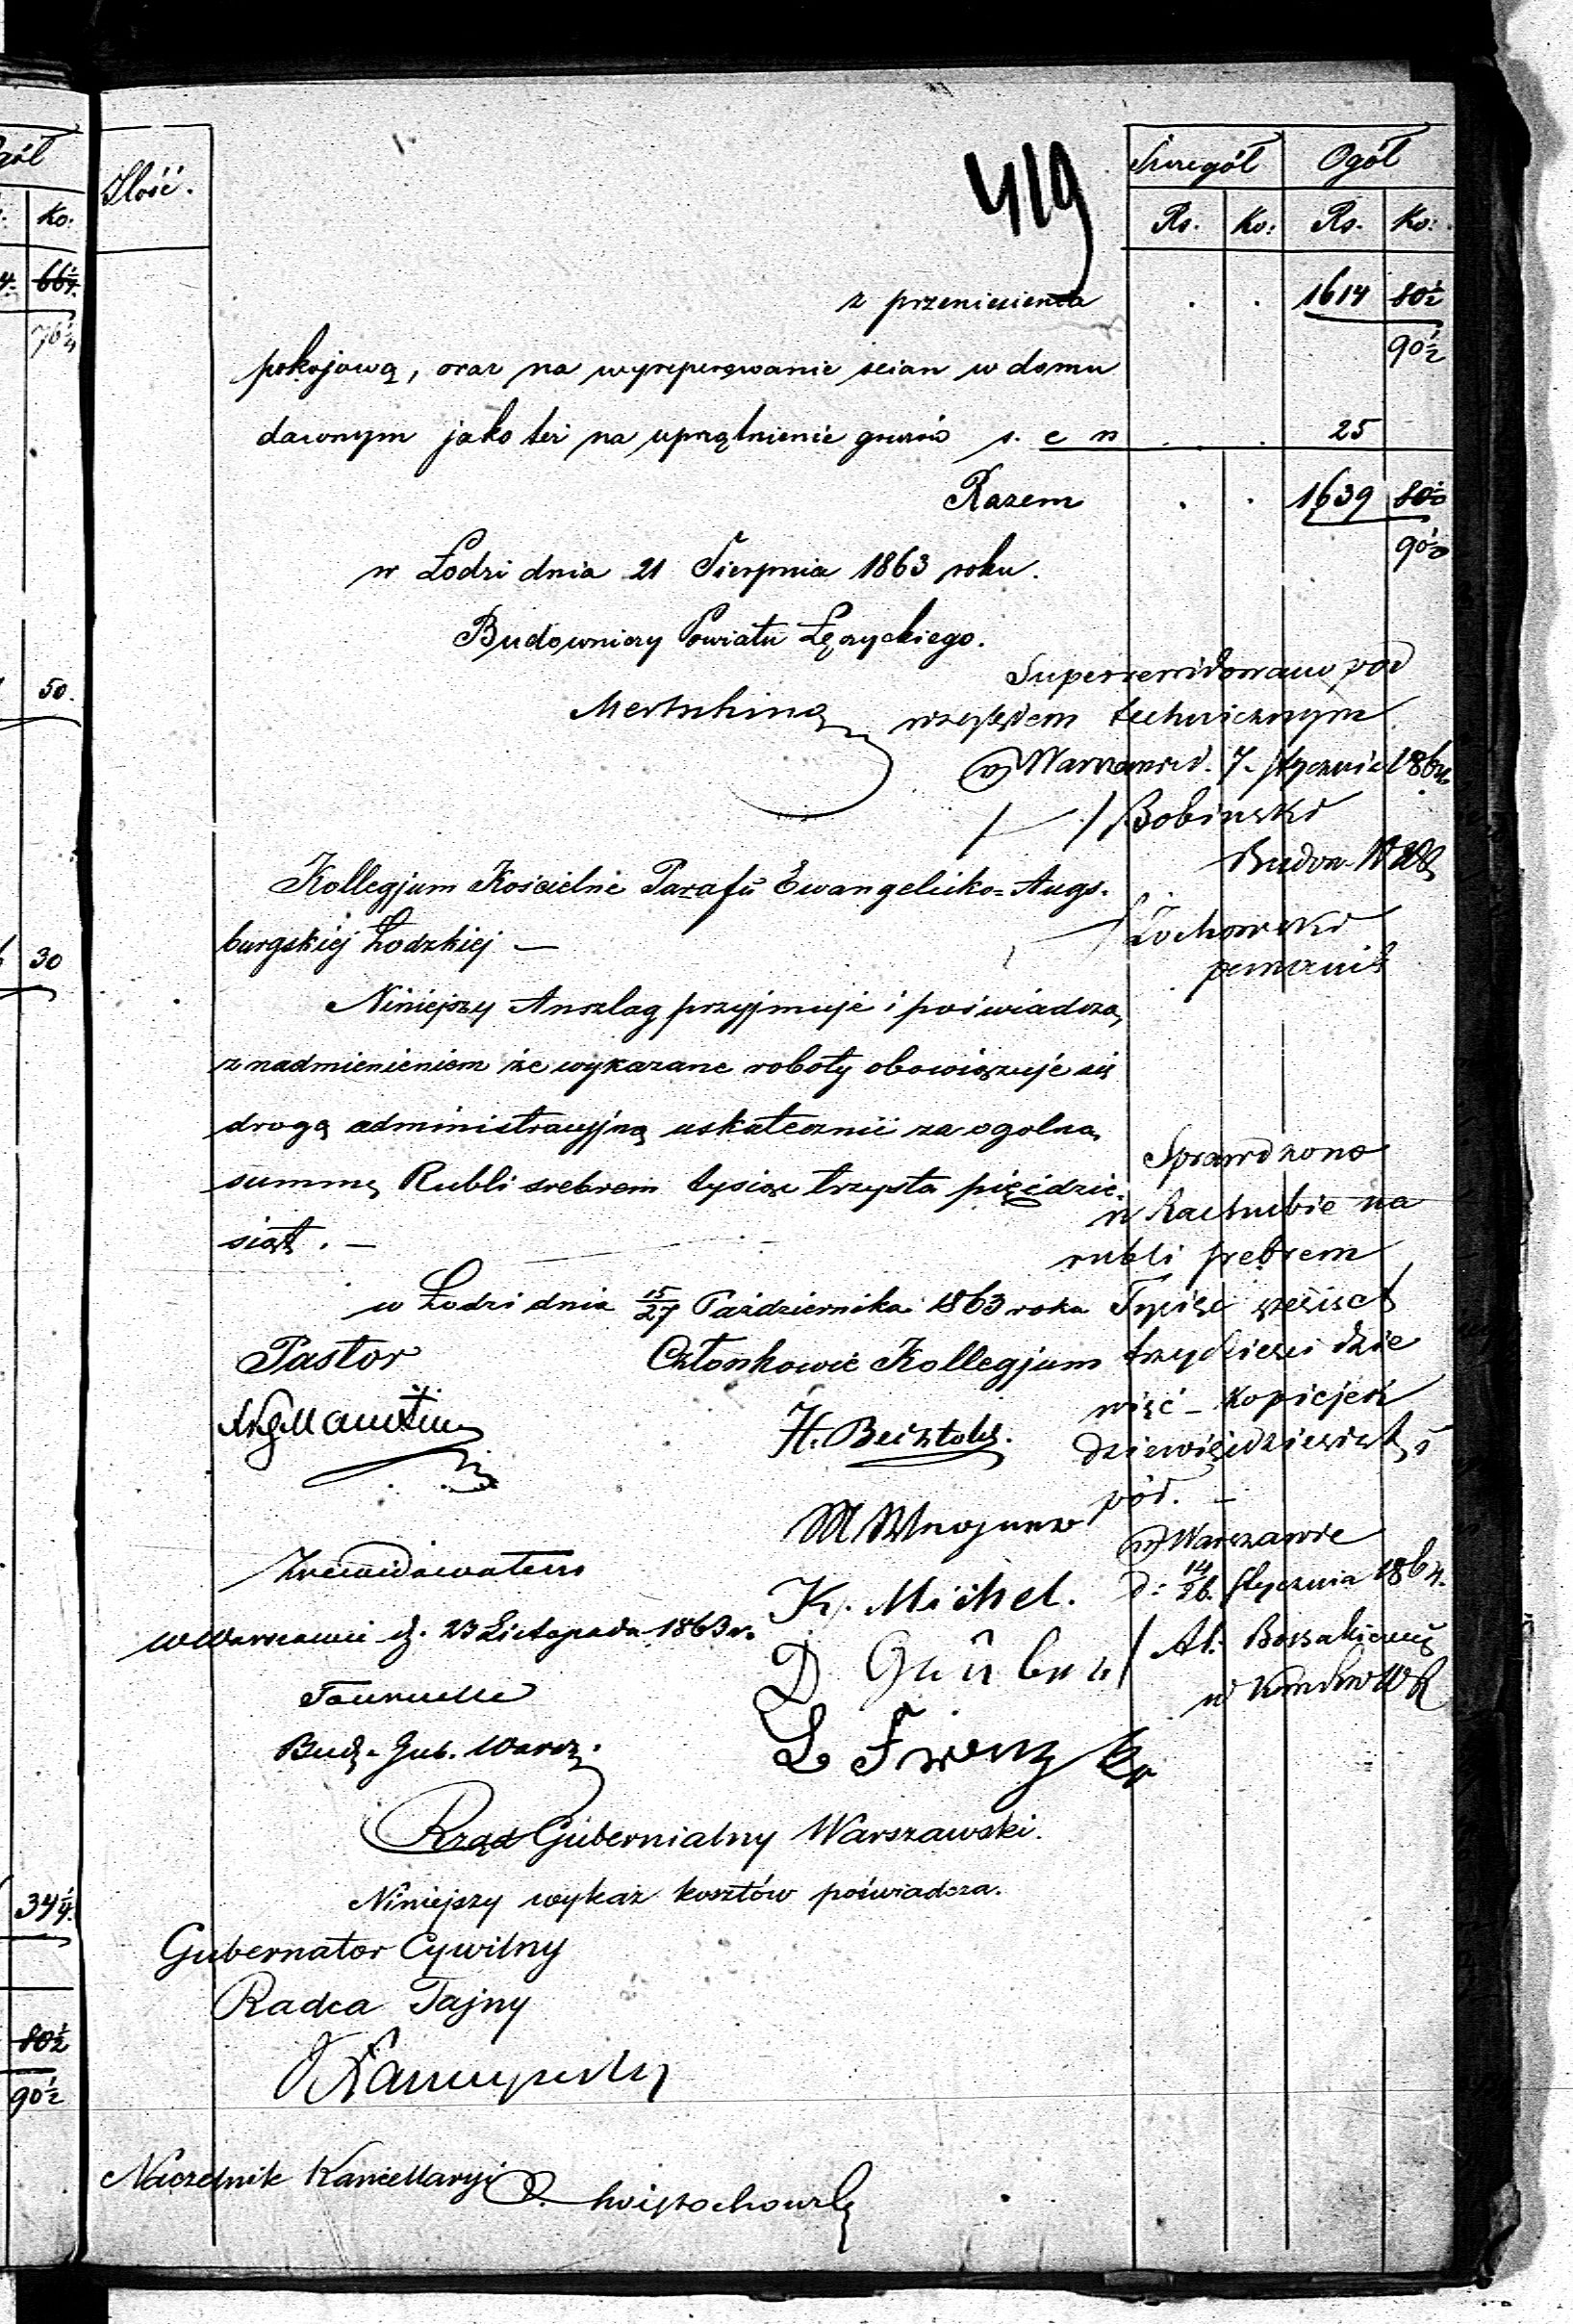 gół
Ko:
4. 66¼
76¼
50.
30
34¼
80½
90½
419
Ilość.
Szczegół Ogół
Rs. Ko: Rs. Ko:
z przeniesienia . . 1614 80½
90½
pokojową, oraz na wyreperowanie scian w domu
dawnym jako też na uprzątnienie gruzów s. e n . . 25
Razem . . 1639 80½
90½
w Łodzi dnia 21 Sierpnia 1863 roku.
Budowniczy Powiatu Łęczyckiego.
Mertsching
Superrewidowano pod
względem technicznym
w Warszawie d. 7. stycznia 1864
/ — / Bobinski
Budow.
Kollegjum Kościelne Parafii Ewangelicko-Augs-
burgskiej Łodzkiej —
Niniejszy Anszlag przyjmuje i poświadcza,
z nadmienieniem że wykazane roboty obowiązuje się
drogą administracyjną uskutecznić za ogolną
summę Rubli srebrem tysiąc trzysta pięćdzie-
siąt. —
w Łodzi dnia 15/27 Października 1863 roku
Pastor
Członkowie Kollegjum
H. Bechtold.
K. Michel.
Zrewidowałem
w Warszawie d. 23 Listopada 1863 r.
Bud. Gub. Warsz.
Sprawdzono
w Rachubie na
rubli srebrem
Tysiąc sześćset
trzydzieści dzie
więć — kopiejek
dziewięćdziesiąt i
pół. —
w Warszawie
d: 14/26. Stycznia 1864.
Rząd Gubernialny Warszawski.
Niniejszy wykaz kosztów poświadcza.
Gubernator Cywilny
Radca Tajny
Naczelnik Kancellaryi